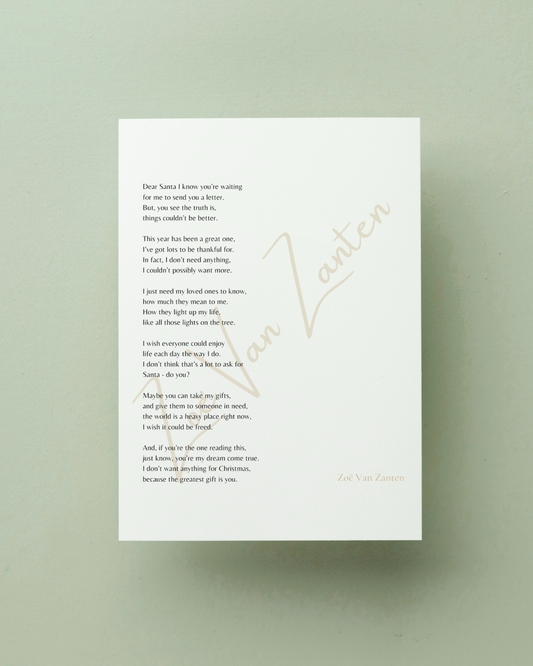 Dear Santa I know you're waiting
for me to send you a letter.
But, you see the truth is,
things couldn't be better.
This year has been a great one,
I've got lots to be thankful for.
In fact, I don't need anything,
I couldn't possibly want more.
I just need my loved ones to know,
how much they mean to me.
How they light up my life,
like all those lights on the tree.
I wish everyone could enjoy
life each day the way I do.
I don't think that's a lot to ask for
Santa - do you?
Maybe you can take my gifts,
and give them to someone in need,
the world is a heavy place right now,
I wish it could be freed.
And, if you're the one reading this,
just know, you're my dream come true.
I don't want anything for Christmas,
because the greatest gift is you.
Zoë Van Zanten
Zoë Van Zanten